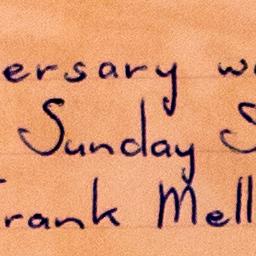 ersary w
Sunday S
Frank Mell